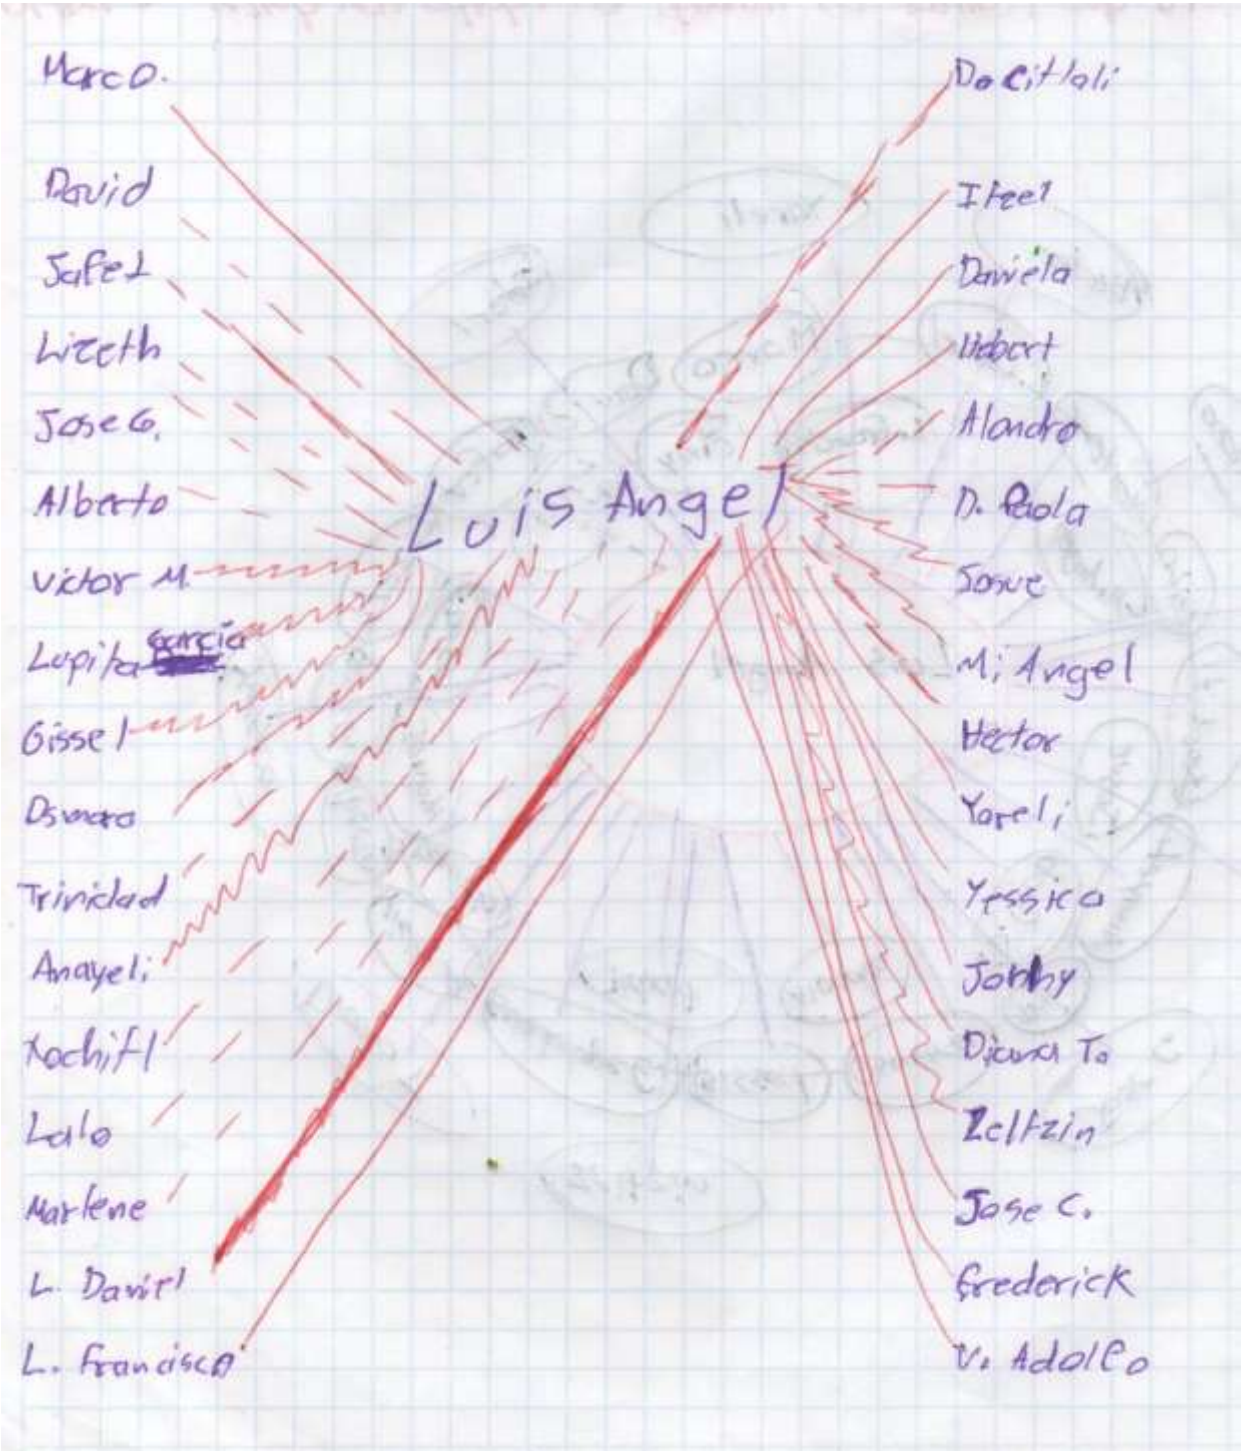 Marco.
David
Jafet
Lizeth
Jose G.
Alberto
Victor M.
Lupita Garcia
Gissel
Osmara
Trinidad
Anayeli
Xochitl
Lalo
Marlene
L. Daniel
L. Francisco
Luis Angel
Da Citlali
Itzel
Daniela
Alandro
D. Paola
Josue
Mi Angel
Hector
Yareli
Yessica
Jonhy
Diana T.
Zeltzin
Jose C.
Frederick
V. Adolfo